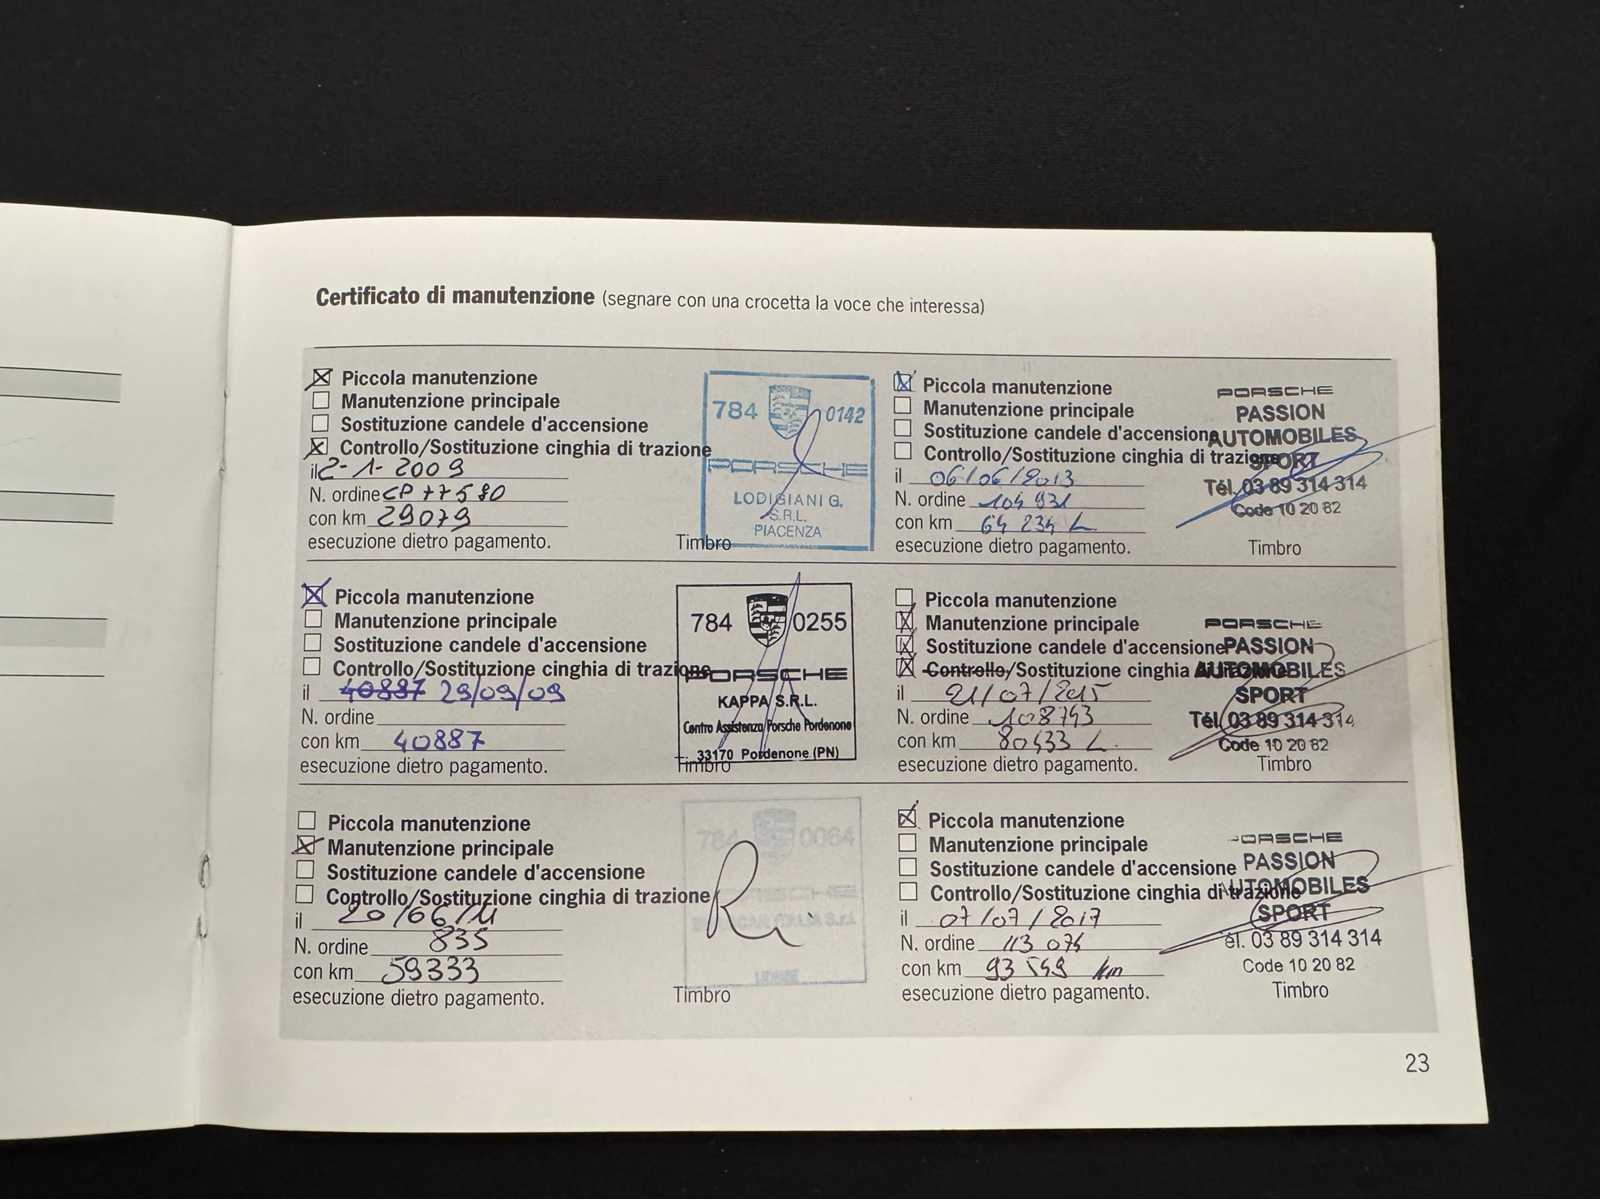 Certificato di manutenzione (segnare con una crocetta la voce che interessa)
Piccola manutenzione
Manutenzione principale
Sostituzione candele d'accensione
Controllo/Sostituzione cinghia di trazione
il 2-1-2009
N. ordine CP 77580
con km 29079
esecuzione dietro pagamento.
784 0142
PORSCHE
LODIGIANI G.
S.R.L.
PIACENZA
Timbro
Piccola manutenzione
Manutenzione principale
Sostituzione candele d'accensione
Controllo/Sostituzione cinghia di trazione
il 40887 29/09/09
N. ordine
con km 40887
esecuzione dietro pagamento.
784 0255
PORSCHE
KAPPA S.R.L.
Centro Assistenza Porsche Pordenone
33170 Pordenone (PN)
Timbro
Piccola manutenzione
Manutenzione principale
Sostituzione candele d'accensione
Controllo/Sostituzione cinghia di trazione
il 20/06/11
N. ordine 835
con km 59333
esecuzione dietro pagamento.
784 0064
PORSCHE
Timbro
Piccola manutenzione
Manutenzione principale
Sostituzione candele d'accensione
Controllo/Sostituzione cinghia di trazione
il 06/06/2013
N. ordine 104 931
con km 64 234
esecuzione dietro pagamento.
PORSCHE
PASSION
AUTOMOBILES
SPORT
Tél. 03 89 314 314
Code 10 20 82
Timbro
Piccola manutenzione
Manutenzione principale
Sostituzione candele d'accensione
Controllo/Sostituzione cinghia di
il 21/07/2015
N. ordine 108743
con km 80433
esecuzione dietro pagamento.
PORSCHE
PASSION
AUTOMOBILES
SPORT
Tél. 03 89 314 314
Code 10 20 82
Timbro
Piccola manutenzione
Manutenzione principale
Sostituzione candele d'accensione
Controllo/Sostituzione cinghia di trazione
il 07/07/2017
N. ordine 113 074
con km 93 549 km
esecuzione dietro pagamento.
PORSCHE
PASSION
AUTOMOBILES
SPORT
Tél. 03 89 314 314
Code 10 20 82
Timbro
23